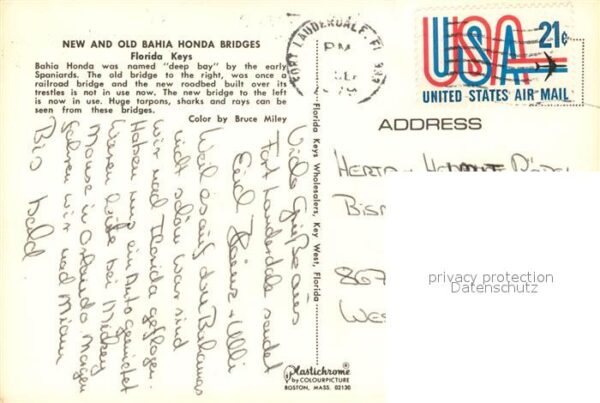 NEW AND OLD BAHIA HONDA BRIDGES
Florida Keys
Bahia Honda was named "deep bay" by the early
Spaniards. The old bridge to the right, was once a
railroad bridge and the new roadbed built over its
trestles is not in use now. The new bridge to the left
is now in use. Huge tarpons, sharks and rays can be
seen from these bridges.
Color by Bruce Miley
Florida Keys Wholesalers, Key West, Florida
Viele Grüße aus
Fort Lauderdale sendet
Heinz + Ulli
Weil es auf den Bahamas
nicht schön war sind
wir nach Florida geflogen.
Haben uns ein Auto gemietet
Waren heute bei Mickey
Mouse in Orlando. Morgen
fahren wir nach Miami
Bis bald
Plastichrome®
by COLOURPICTURE
BOSTON, MASS. 02130
FORT LAUDERDALE, FL
PM
USA 21¢
UNITED STATES AIR MAIL
ADDRESS
HERTA
867
privacy protection
Datenschutz